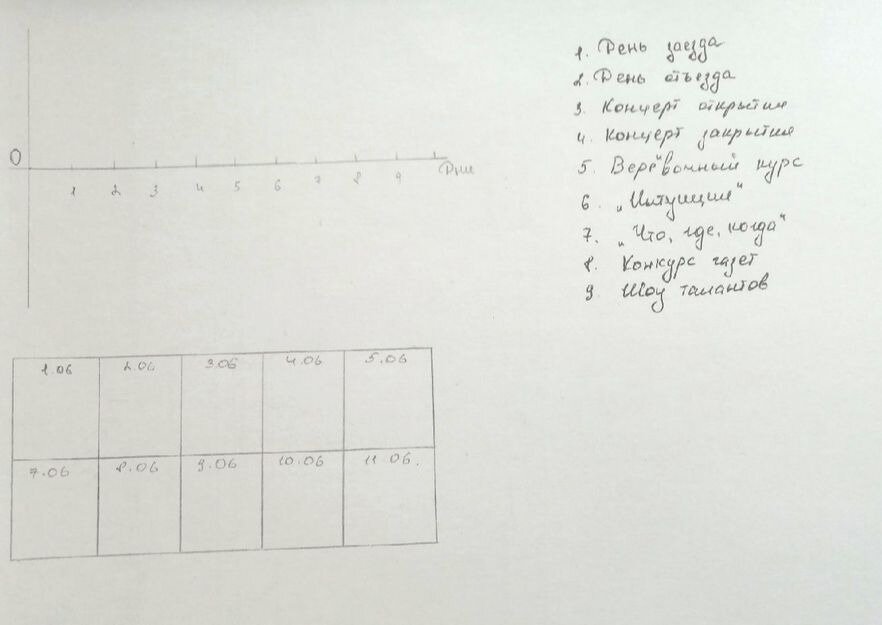 0
1 2 3 4 5 6 7 8 9 Дни
1. День заезда
2. День отъезда
3. Концерт открытия
4. Концерт закрытия
5. Верёвочный курс
6. „Интуиция"
7. „Что, где, когда"
8. Конкурс газет
9. Шоу талантов
1.06 2.06 3.06 4.06 5.06
7.06 8.06 9.06 10.06 11.06.